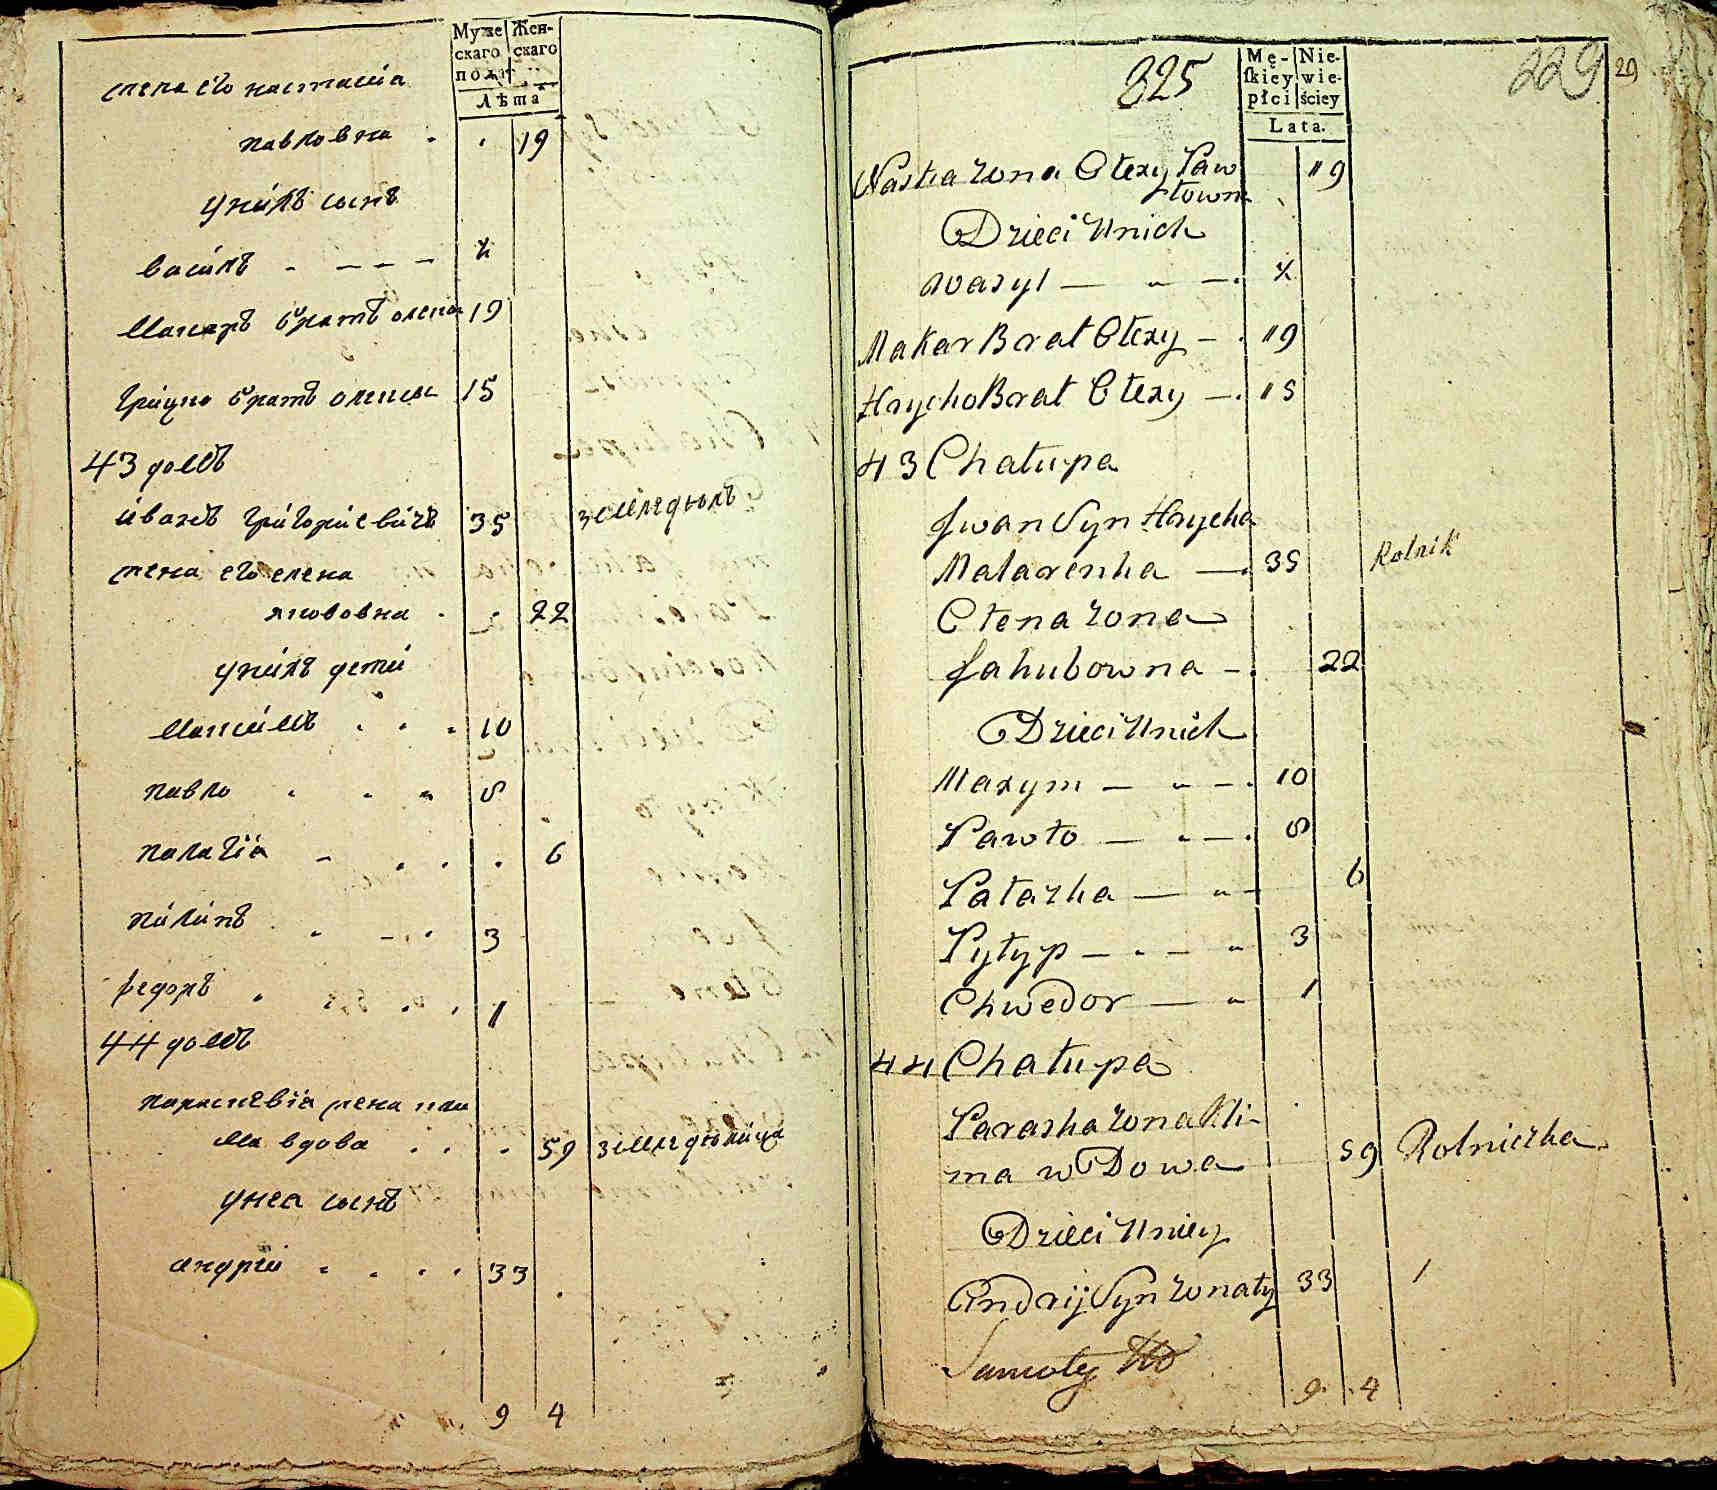 Муже Жен-
скаго скаго
пола
Лѣта
жена его настасиа
павловна . . 19
унихъ сынъ
василъ . — — — ½
Макаръ братъ олексы 19
грицко братъ олексы 15
43 домъ
иванъ григориевичъ 35 земледюлъ
жена его елена
якововна . . 22
унихъ дети
Максимъ . . . 10
павло . . . 8
палагiа — . . . 6
пилипъ . — . . 3
федоръ . . . . 1
44 домъ
параскевiа жена кли
ма вдова . . . 59 земледюлица
унеа сынъ
андрiи . . . . 33
9 4
825
229
29
Mę- Nie-
skiey wie-
płci ściey
Lata.
Nastia zona Ołexy Paw
łowna 19
Dzieci Unich
Wasyl — „ — . ½
Makar Brat Ołexy — . 19
Hrycko Brat Ołexy — . 15
43 Chałupa
Jwan Syn Hrycka
Matarenka — . 35 Rolnik
Ołena zona
Jakubowna — . 22
Dzieci Unich
Maxym — „ — . 10
Pawło — „ — . 8
Pałazka — „ — 6
Pyłyp — . — „ 3
Chwedor — „ 1
44 Chałupa
Paraska zona Kli-
ma wDowa 59 Rolniczka
Dzieci Uniey
Andrij Syn zonaty 33
9. . 4